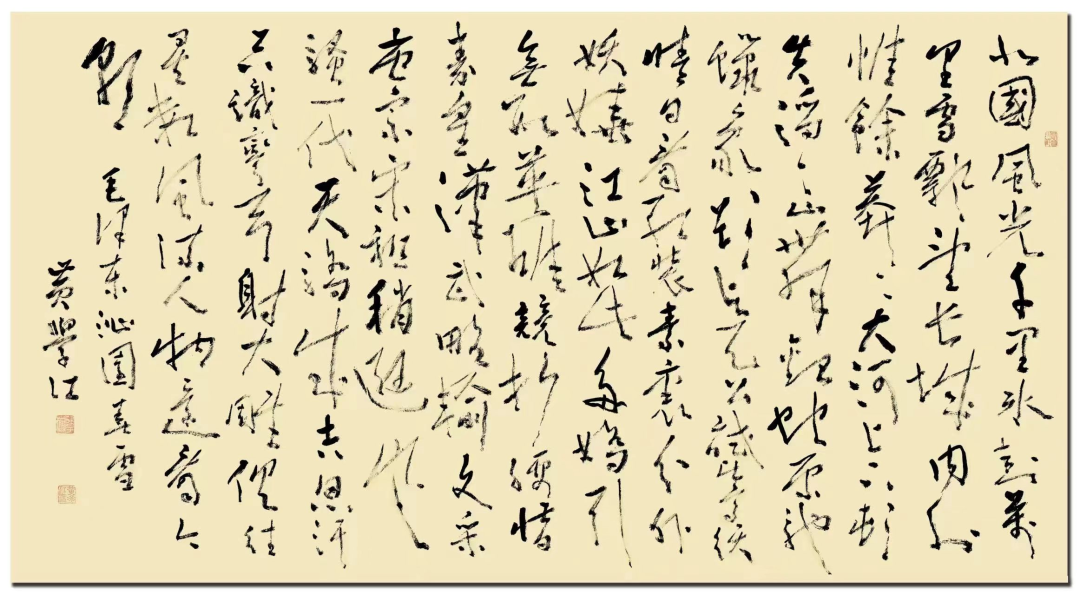 北國風光千里冰封萬
里雪飄望長城內外
惟餘莽〻大河上下頓
失滔〻山舞銀蛇原馳
蠟象欲與天公試比高須
晴日看紅裝素裹分外
妖嬈江山如此多嬌引
無數英雄競折腰惜
秦皇漢武略輸文采
唐宗宋祖稍遜風
騷一代天驕成吉思汗
只識彎弓射大雕俱往
矣數風流人物還看今
朝 毛澤東沁園春雪
黃學